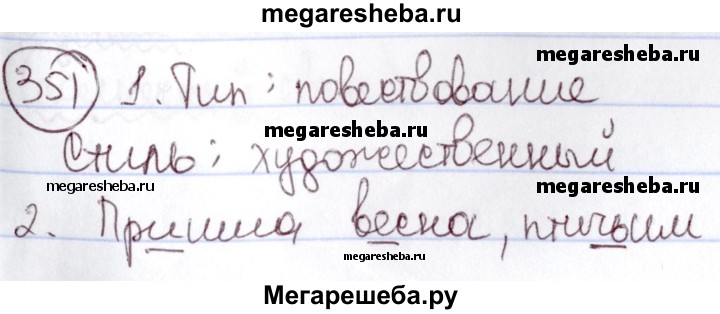 megaresheba.ru
megaresheba.ru
351 1. Тип: повествование
megaresheba.ru
Стиль: художественный
megaresheba.ru
megaresheba.ru
2. Пришла весна, птичьим
megaresheba.ru
megaresheba.ru
Мегарешеба.ру